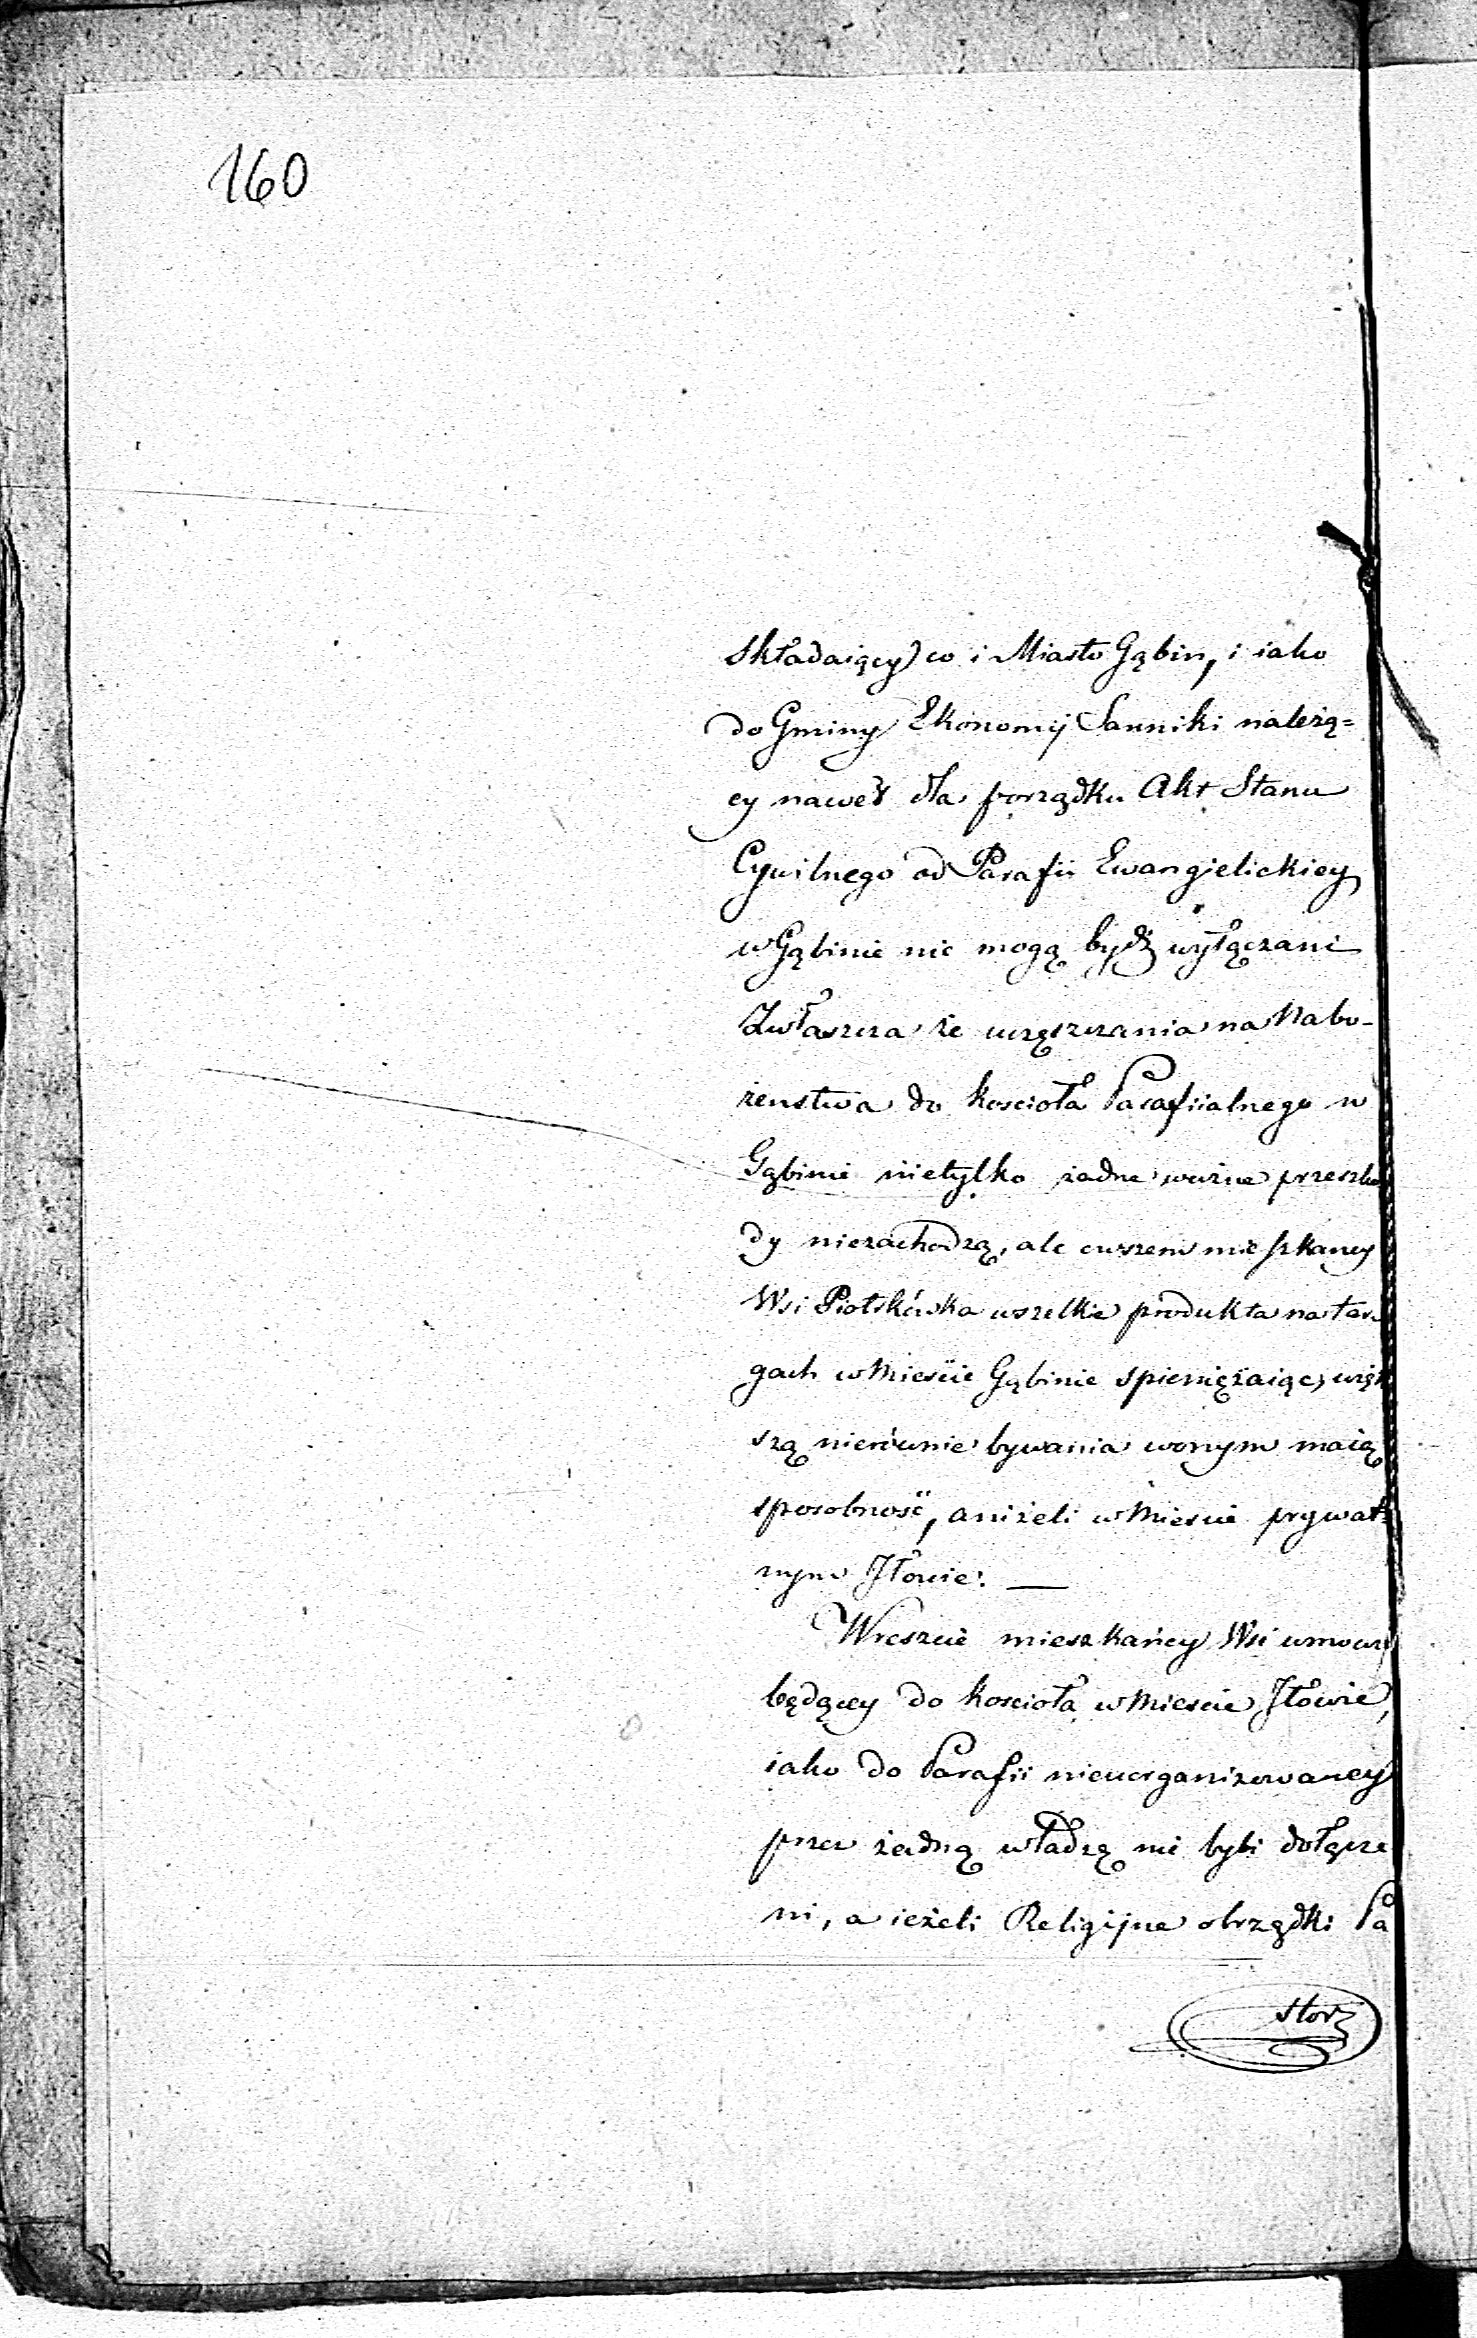 160
składaiący co i Miasto Gąbin, i iako
do Gminy Ekonomij Sanniki należą=
cy nawet dla porządku Akt Stanu
Cywilnego od Parafii Ewangielickiey
w Gąbinie nie mogą bydź wyłączani
Zwłaszcza że uczęszczania na Nabo-
żeństwa do kościoła Parafiialnego w
Gąbinie nietylko żadne ważne przeszko
dy niezachodzą, ale owszem mieszkańcy
Wsi Piotrkówka wszelkie produkta na tar
gach w Mieście Gąbinie spieniężaiąc, więk
szą nierównie bywania w onym maią
sposobność, aniżeli w Mieście prywat=
nym Iłowie. —
Wreszcie mieszkańcy Wsi w mowie
będącey do kościoła w Mieście Iłowie,
iako do Parafii nieuorganizowaney
przez żadną władzę nie byli dołącze
ni, a ieżeli Religijne obrządki Pa
storz